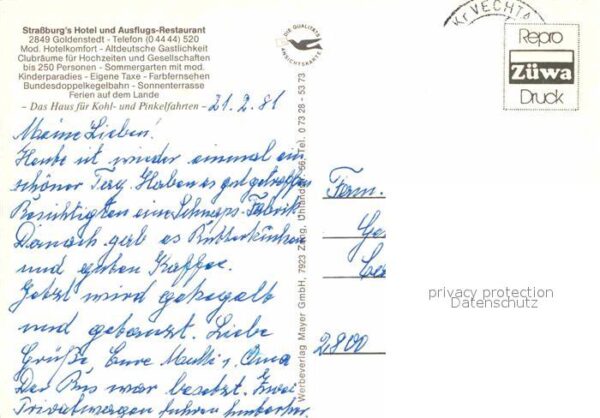 Straßburg's Hotel und Ausflugs-Restaurant
2849 Goldenstedt - Telefon (0 44 44) 520
Mod. Hotelkomfort - Altdeutsche Gastlichkeit
Clubräume für Hochzeiten und Gesellschaften
bis 250 Personen - Sommergarten mit mod.
Kinderparadies - Eigene Taxe - Farbfernsehen
Bundesdoppelkegelbahn - Sonnenterrasse
Ferien auf dem Lande
- Das Haus für Kohl- und Pinkelfahrten -
21.2.81
Meine Lieben!
Heute ist wieder einmal ein
schöner Tag. Haben es gut getroffen
Besichtigten eine Schnaps-Fabrik
Danach gab es Butterkuchen
und guten Kaffee.
Jetzt wird gekegelt
und getanzt. Liebe
Grüße Eure Mutti, Oma
Der Bus war besetzt. Zwei
Privatwagen fuhren hinterher.
DIE QUALITÄTS
ANSICHTSKARTE
Werbeverlag Mayer GmbH, 7923 Zang, Uhlandstr. 56, Tel. 0 73 28 - 53 73
Kr VECHTA
Repro
Züwa
Druck
Fam.
2800
privacy protection
Datenschutz